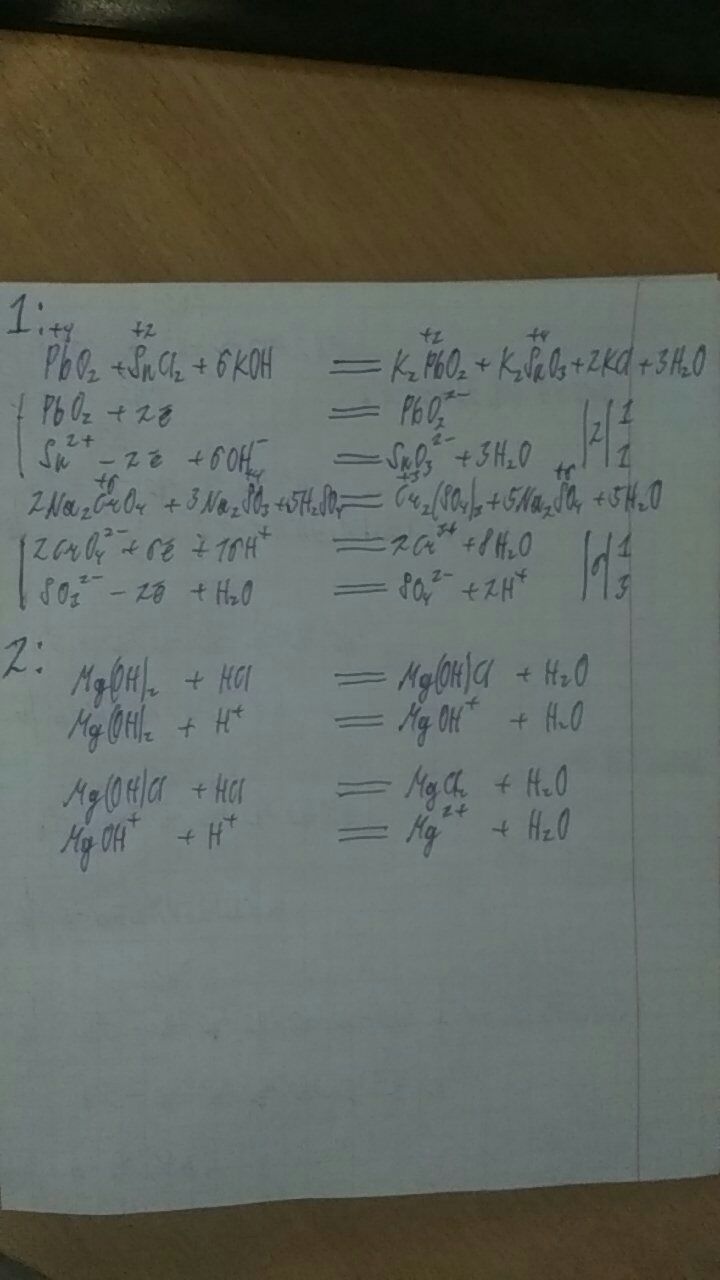 1:
+4 +2 +2 +4
PbO₂ + SnCl₂ + 6KOH = K₂PbO₂ + K₂SnO₃ + 2KCl + 3H₂O
PbO₂ + 2ē = PbO₂²⁻ | 2 | 1
Sn²⁺ - 2ē + 6OH⁻ = SnO₃²⁻ + 3H₂O | 1
+6 +4 +3 +6
2Na₂CrO₄ + 3Na₂SO₃ + 5H₂SO₄ = Cr₂(SO₄)₃ + 5Na₂SO₄ + 5H₂O
2CrO₄²⁻ + 6ē + 16H⁺ = 2Cr³⁺ + 8H₂O | 6 | 1
SO₃²⁻ - 2ē + H₂O = SO₄²⁻ + 2H⁺ | 3
2:
Mg(OH)₂ + HCl = Mg(OH)Cl + H₂O
Mg(OH)₂ + H⁺ = MgOH⁺ + H₂O
Mg(OH)Cl + HCl = MgCl₂ + H₂O
MgOH⁺ + H⁺ = Mg²⁺ + H₂O